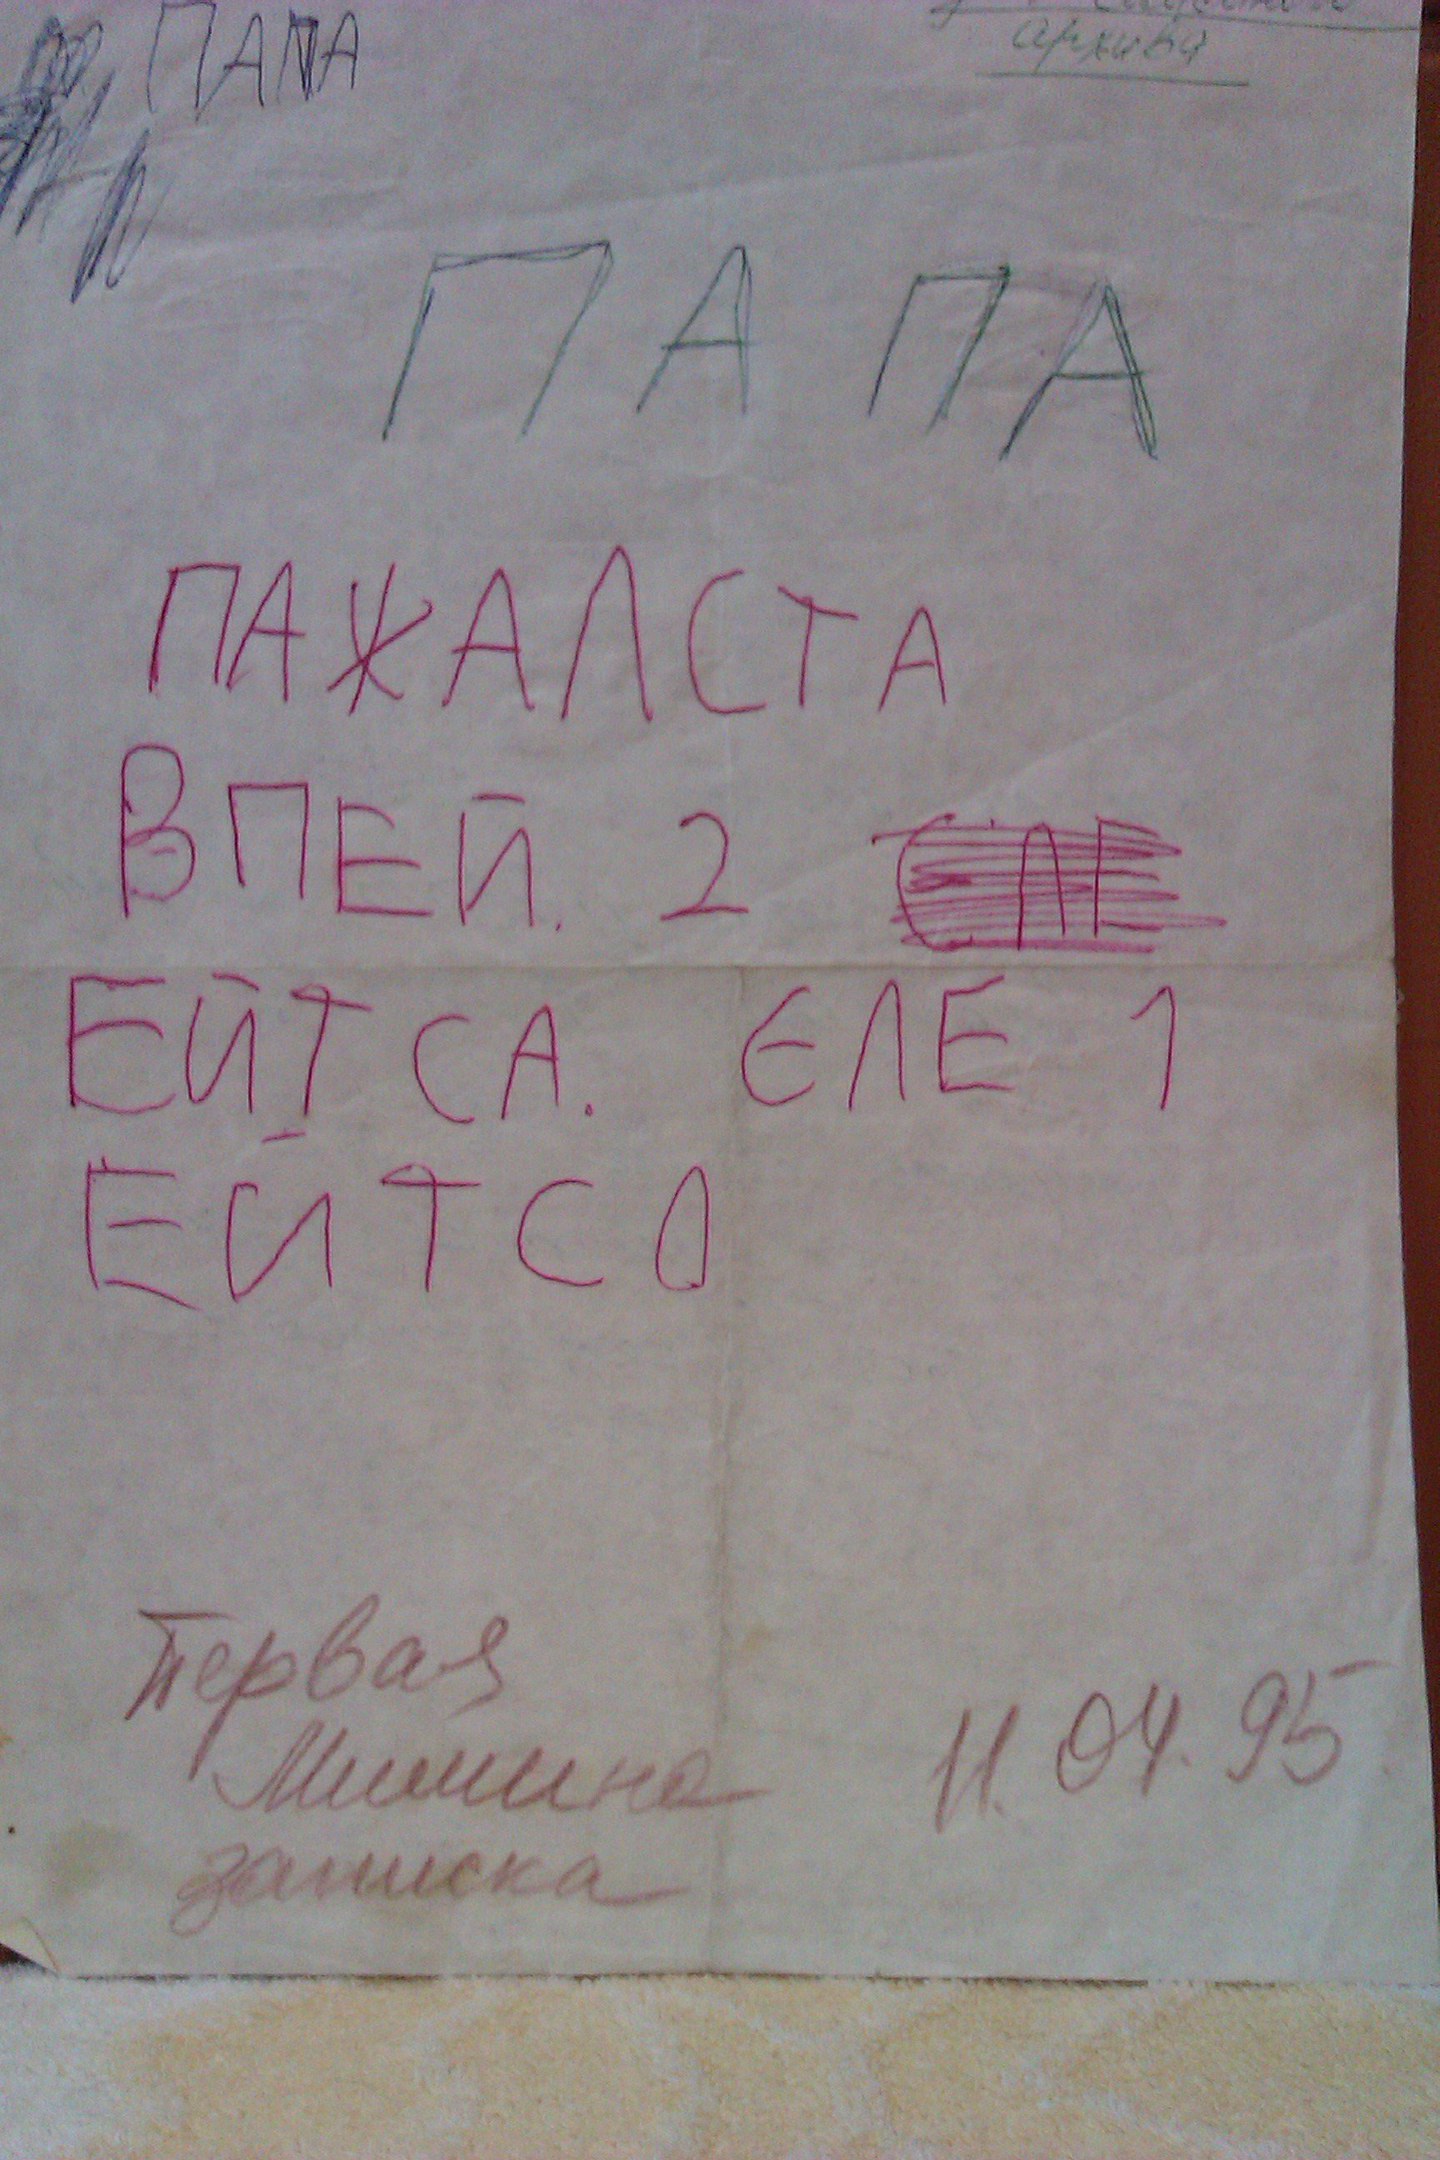 ПАПА
архива
ПАПА
ПАЖАЛСТА
ВПЕЙ. 2
ЕЙТСА. ЕЛЕ 1
ЕЙТСО
Первая
Мишина
записка
11.04.95